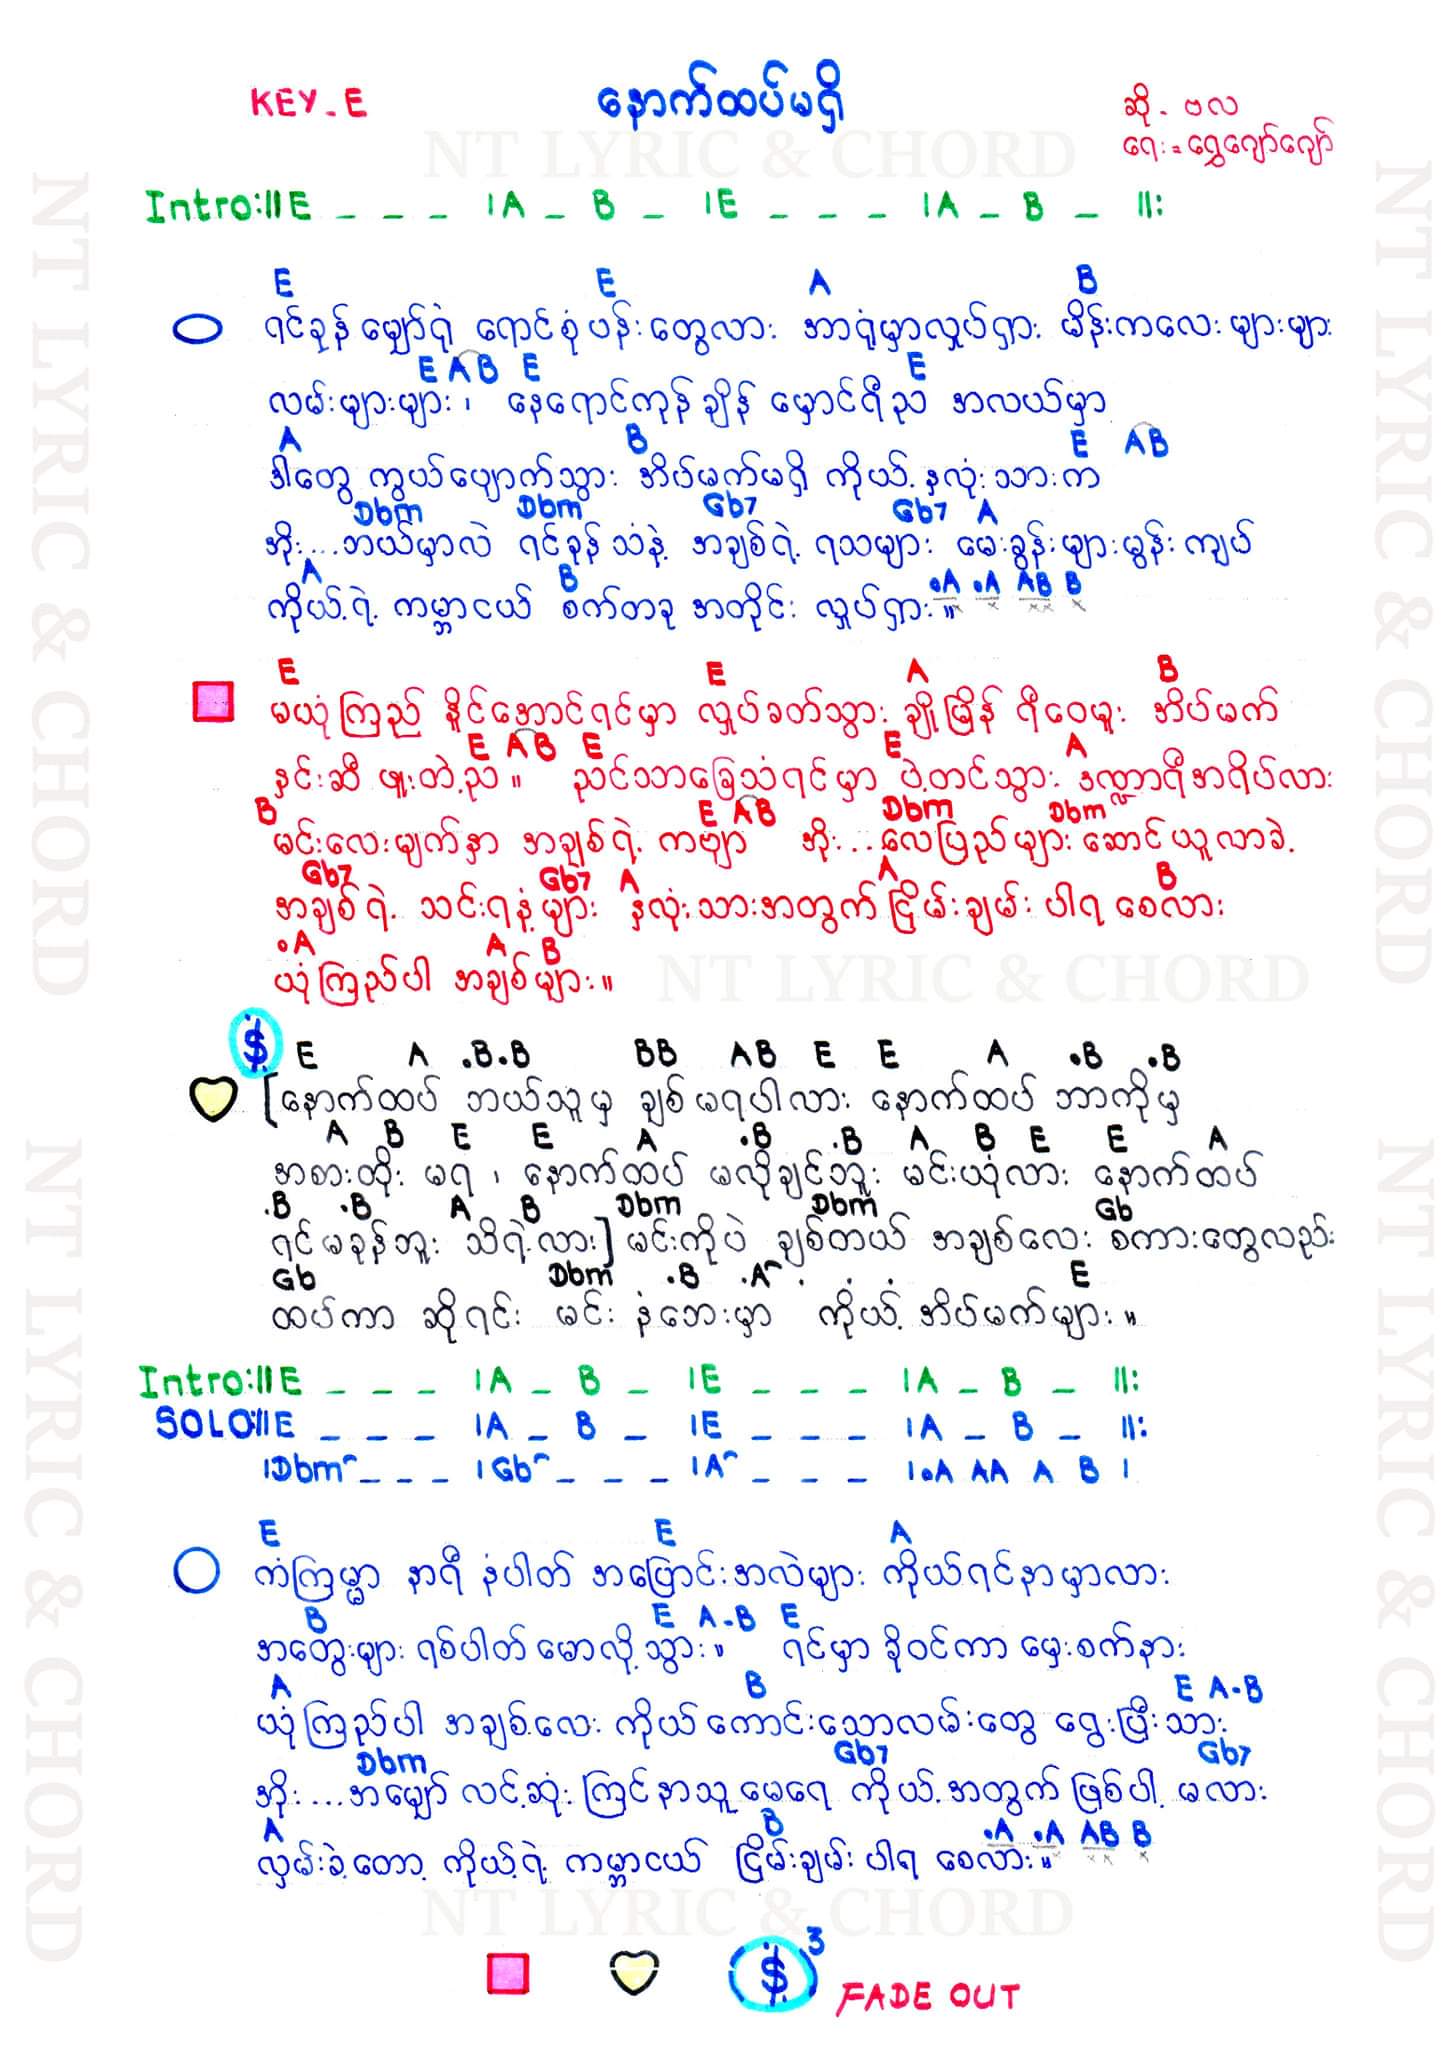 KEY-E
နောက်ထပ်မရှိ
ဆို - ဗလ
ရေး = ရွှေဂျော်ဂျော်
NT LYRIC & CHORD
Intro:||E _ _ _ |A _ B _ |E _ _ _ |A _ B _ ||:
E E A B
ရင်ခုန် မျှော်ရုံ ရောင်စုံပန်းတွေလား အာရုံမှာလှုပ်ရှား မိန်းကလေးများများ
E A B E E
လမ်းများများ၊ နေရောင်ကုန်ချိန် မှောင်ရီည အလယ်မှာ
A B E AB
ဒါတွေ ကွယ်ပျောက်သွား အိပ်မက်မရှိ ကိုယ့်နှလုံးသားက
Dbm Dbm Gb7 Gb7 A
အိုး...ဘယ်မှာလဲ ရင်ခုန်သံနဲ့ အချစ်ရဲ့ ရသများ မေးခွန်းများမွန်းကျပ်
A B .A .A AB B
ကိုယ့်ရဲ့ ကမ္ဘာငယ် စက်တခု အတိုင်း လှုပ်ရှား။
E E A B
မယုံကြည် နိူင်အောင်ရင်မှာ လှုပ်ခတ်သွား ချိုမြိန် ရီဝေမူး အိပ်မက်
E A B E E A
နှင်းဆီ ဖူးတဲ့ည။ ညင်သာခြေသံရင်မှာ ပဲ့တင်သွား ဒဏ္ဍာရီအရိပ်လား
B E AB Dbm Dbm
မင်းလေးမျက်နှာ အချစ်ရဲ့ ကဗျာ အိုး...လေပြည်များဆောင်ယူလာခဲ့
Gb7 Gb7 A A B
အချစ်ရဲ့ သင်းရနံ့များ နှလုံးသားအတွက်ငြိမ်းချမ်းပါရစေလား
.A A B
ယုံကြည်ပါ အချစ်များ။
NT LYRIC & CHORD
$ E A .B.B BB AB E E A .B .B
[နောက်ထပ် ဘယ်သူမှ ချစ်မရပါလား နောက်ထပ် ဘာကိုမှ
A B E E A .B .B A B E E A
အစားထိုး မရ၊ နောက်ထပ် မလိုချင်ဘူး မင်းယုံလား နောက်ထပ်
.B .B A B Dbm Dbm Gb
ရင်မခုန်ဘူး သိရဲ့လား] မင်းကိုပဲ ချစ်တယ် အချစ်လေး စကားတွေလည်း
Gb Dbm .B .A^ . . . E
ထပ်ကာ ဆိုရင်း မင်း နံဘေးမှာ ကိုယ့်အိပ်မက်များ။
Intro:||E _ _ _ |A _ B _ |E _ _ _ |A _ B _ ||:
SOLO:||E _ _ _ |A _ B _ |E _ _ _ |A _ B _ ||:
|Dbm^_ _ _ |Gb^_ _ _ |A^_ _ _ |.A AA A B |
E E A
ကံကြမ္မာ နာရီ နံပါတ် အပြောင်းအလဲများ ကိုယ်ရင်နာမှာလား
B E A-B E
အတွေးများ ရစ်ပါတ်မောလို့သွား။ ရင်မှာ ခိုဝင်ကာ မှေးစက်နား
A B E A-B
ယုံကြည်ပါ အချစ်လေး ကိုယ်ကောင်းသောလမ်းတွေ ရွေးပြီးသား
Dbm Gb7 Gb7
အိုး...အမျှော် လင့်ဆုံး ကြင်နာသူမေရေ ကိုယ့်အတွက်ဖြစ်ပါ့ မလား
A B .A .A AB B
လှမ်းခဲ့တော့ ကိုယ့်ရဲ့ ကမ္ဘာငယ် ငြိမ်းချမ်းပါရစေလား။
NT LYRIC & CHORD
$ 3 FADE OUT
NT LYRIC & CHORD
NT LYRIC & CHORD
NT LYRIC & CHORD
NT LYRIC & CHORD